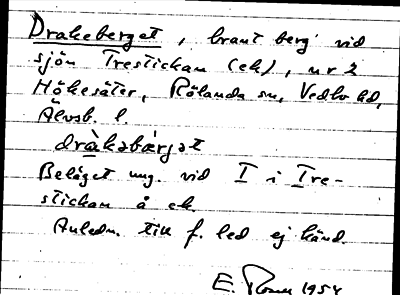 Drakeberget, brant berg vid
sjön Trestickan (ek), nr 2
Hökesäter, Rölanda sn, Vedbo hd,
Älvsb. l.
dràkəbærjət
Beläget ung. vid T i Tre-
stickan å ek.
Anledn. till f. led ej känd.
E. 1954